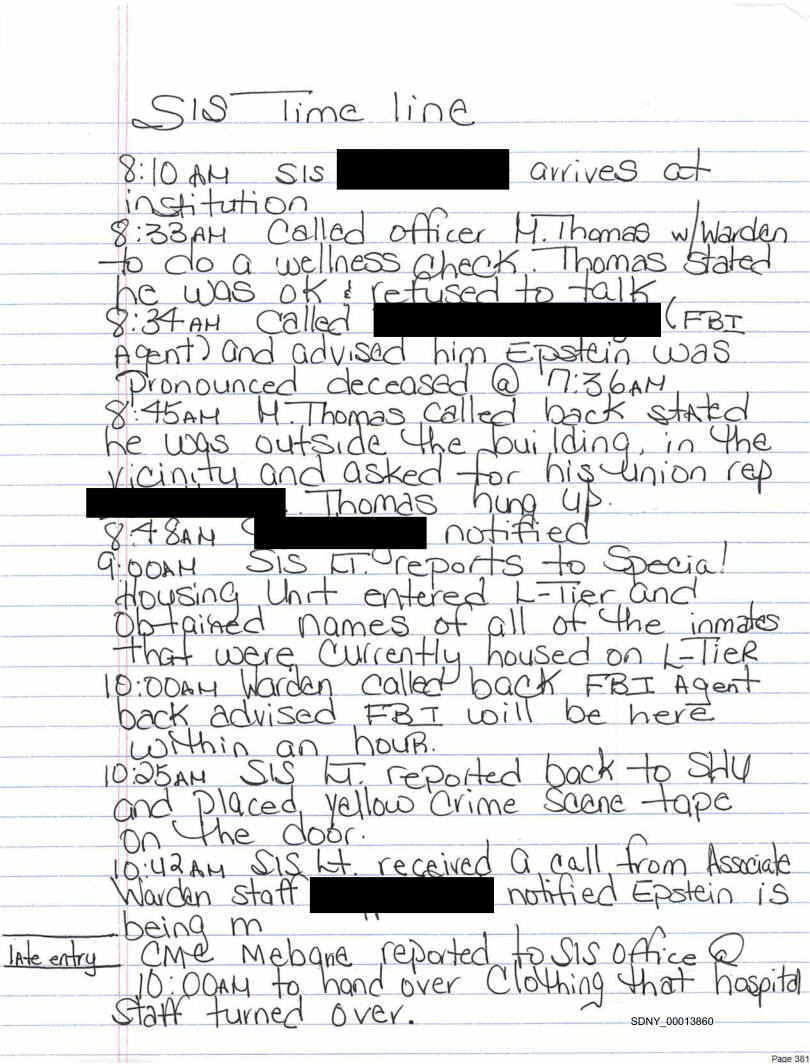 SIS Time line
8:10 AM SIS arrives at
institution
8:33AM Called officer M. Thomas w/Warden
to do a wellness check. Thomas stated
he was ok & refused to talk
8:34AM Called (FBI
Agent) and advised him Epstein was
pronounced deceased @ 7:36AM
8:45AM M. Thomas called back stated
he was outside the building, in the
vicinity and asked for his union rep
. Thomas hung up.
8:48AM notified
9:00AM SIS LT. reports to Special
Housing Unit entered L-Tier and
Obtained names of all of the inmates
that were currently housed on L-Tier
10:00AM Warden called back FBI Agent
back advised FBI will be here
within an hour.
10:25AM SIS LT. reported back to SHU
and placed yellow Crime Scene tape
on the door.
10:42AM SIS Lt. received a call from Associate
Warden staff notified Epstein is
being m
late entry CMC Mebane reported to SIS office @
10:00AM to hand over Clothing that hospital
Staff turned over.
SDNY_00013860
Page 381